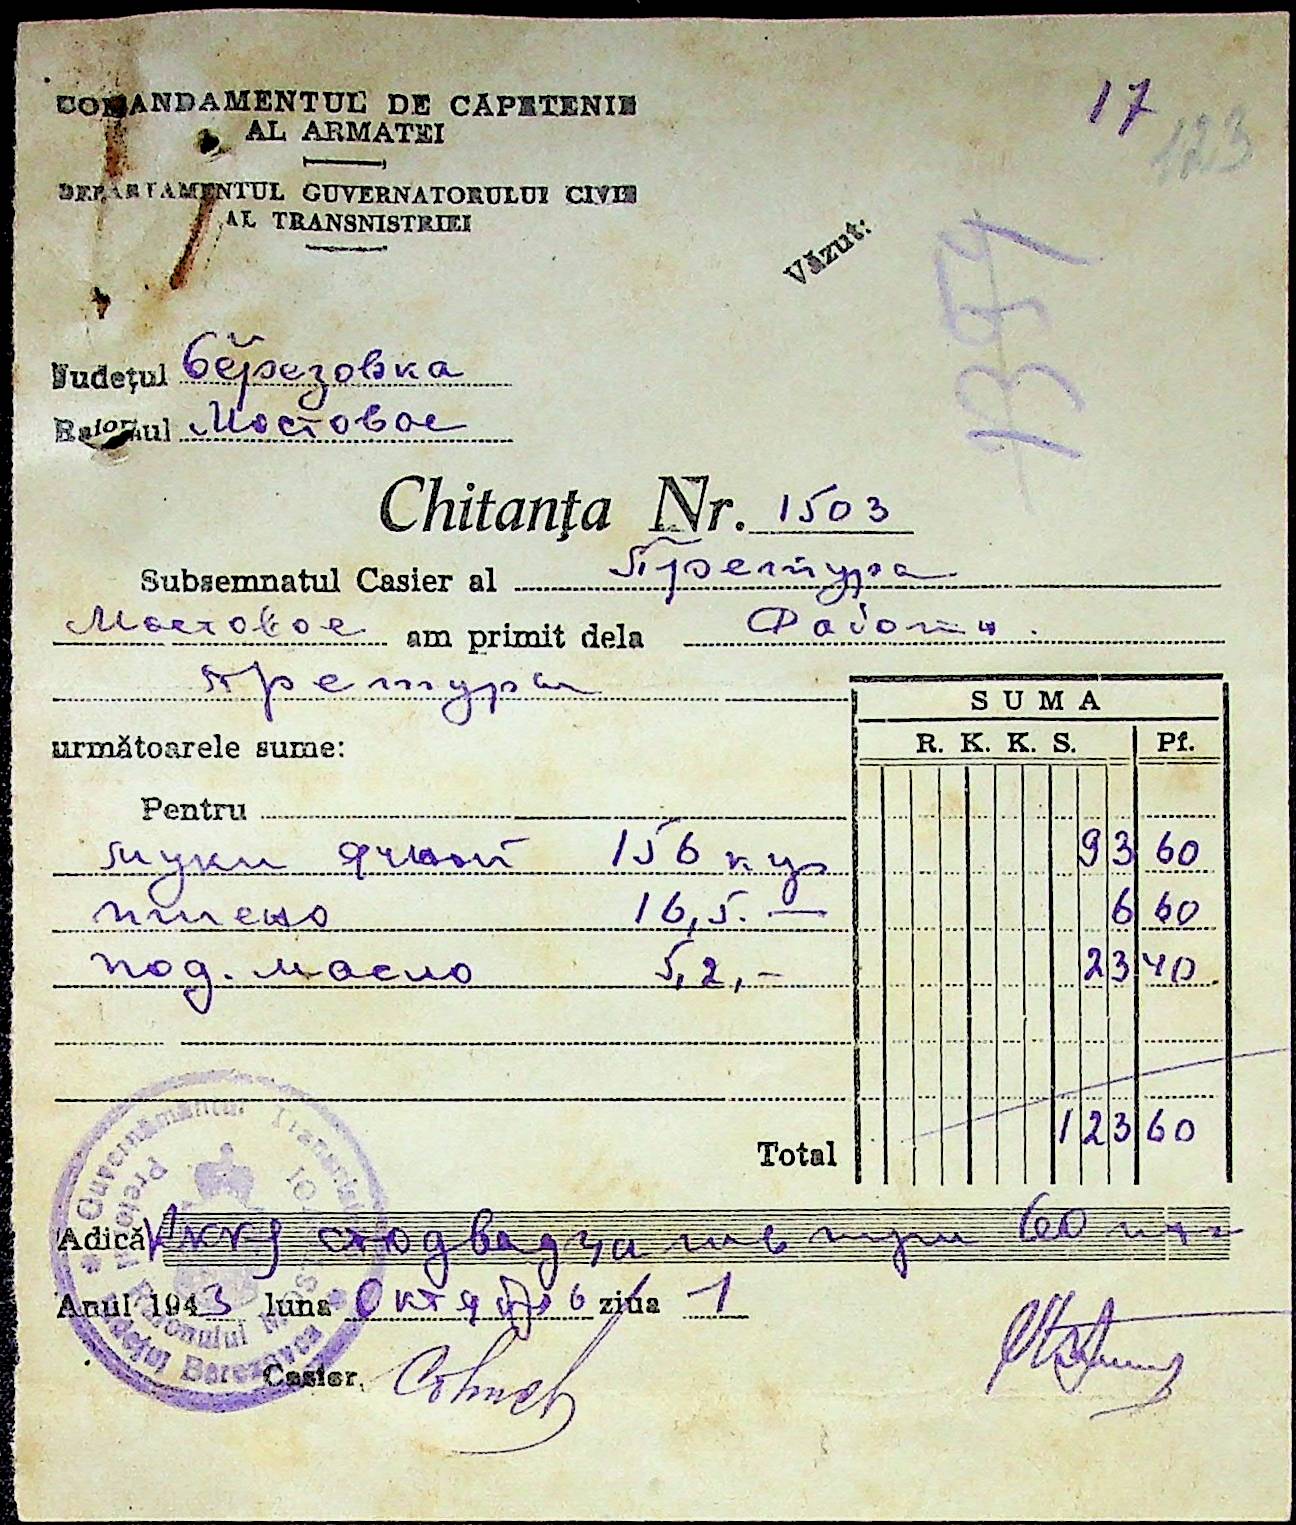 COMANDAMENTUL DE CAPETENIE
AL ARMATEI
DEPARTAMENTUL GUVERNATORULUI CIVIL
AL TRANSNISTRIEI
17
123
Văzut:
1394
Județul березовка
Raionul Мостовое
Chitanța Nr. 1503
Subsemnatul Casier al Претура
Мостовое am primit dela Работн.
претуры
următoarele sume:
SUMA
R. K. K. S. Pf.
Pentru
муки ячной 156 кгр 93 60
пшено 16,5. — 6 60
под. масло 5,2, - 23 40
Total 123 60
Adică Ркк стодвадцать три 60
Anul 1943 luna Октябрь ziua 1
Casier,
Guvernământul Transnistriei
Pretura Raionului
Județul Berezovca